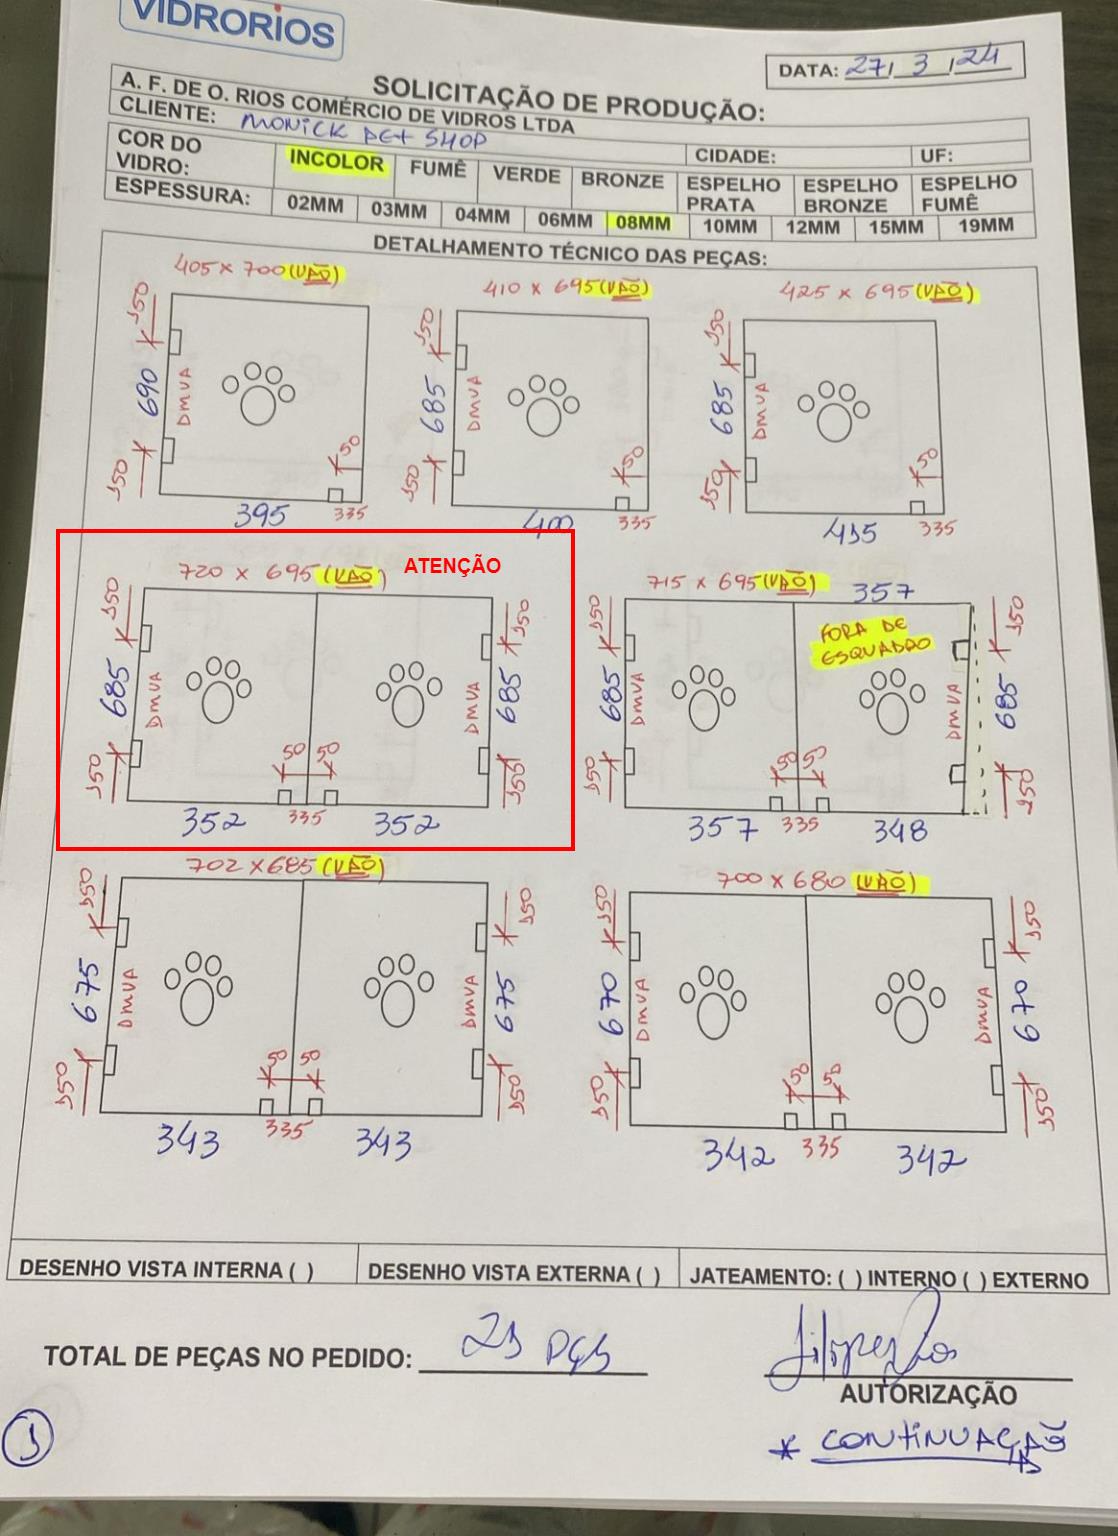 VIDRORIOS
DATA: 27/3/24
SOLICITAÇÃO DE PRODUÇÃO:
A. F. DE O. RIOS COMÉRCIO DE VIDROS LTDA
CLIENTE: MONICK PET SHOP
CIDADE: UF:
COR DO VIDRO: INCOLOR FUMÊ VERDE BRONZE ESPELHO PRATA ESPELHO BRONZE ESPELHO FUMÊ
ESPESSURA: 02MM 03MM 04MM 06MM 08MM 10MM 12MM 15MM 19MM
DETALHAMENTO TÉCNICO DAS PEÇAS:
405 x 700 (VÃO)
150
690
DMVA
150
50
395
335
410 x 695 (VÃO)
150
685
DMVA
150
50
400
335
425 x 695 (VÃO)
150
685
DMVA
150
50
415
335
ATENÇÃO
720 x 695 (VÃO)
150 150
685 DMVA DMVA 685
150 50 50 150
352 335 352
715 x 695 (VÃO) 357
150 150
FORA DE
ESQUADRO
685 DMVA DMVA 685
150 50 50 150
357 335 348
702 x 685 (VÃO)
150 150
675 DMVA DMVA 675
150 50 50 150
343 335 343
700 x 680 (VÃO)
150 150
670 DMVA DMVA 670
150 50 50 150
342 335 342
DESENHO VISTA INTERNA ( ) DESENHO VISTA EXTERNA ( ) JATEAMENTO: ( ) INTERNO ( ) EXTERNO
TOTAL DE PEÇAS NO PEDIDO: 21 PÇS
AUTORIZAÇÃO
* CONTINUAÇÃO
1